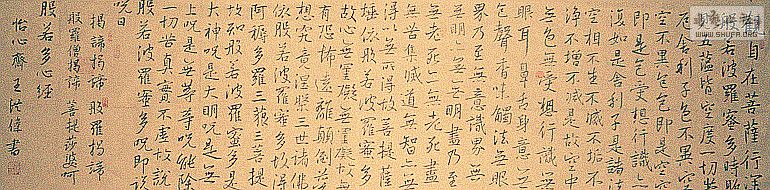 自在菩薩行深
般若波羅蜜多時照
見五蘊皆空度一切苦
厄舍利子色不異空
空不異色色即是空空
即是色受想行識亦
復如是舍利子是諸法
空相不生不滅不垢不
淨不增不減是故空中
無色無受想行識無
眼耳鼻舌身意無
色聲香味觸法無眼
界乃至無意識界無
無明亦無無明盡乃至
無老死亦無老死盡
無苦集滅道無智亦無
得以無所得故菩提薩
埵依般若波羅蜜多
故心無罣礙無罣礙故無
有恐怖遠離顛倒夢
想究竟涅槃三世諸佛
依般若波羅蜜多故得
阿耨多羅三藐三菩提
故知般若波羅蜜多是
大神咒是大明咒是無
上咒是無等等咒能除
一切苦真實不虛故說
般若波羅蜜多咒即說
咒曰
揭諦揭諦 般羅揭諦
般羅僧揭諦 菩提莎婆呵
般若多心經
怡心齋王洪偉書
WWW.SHUFA.ORG